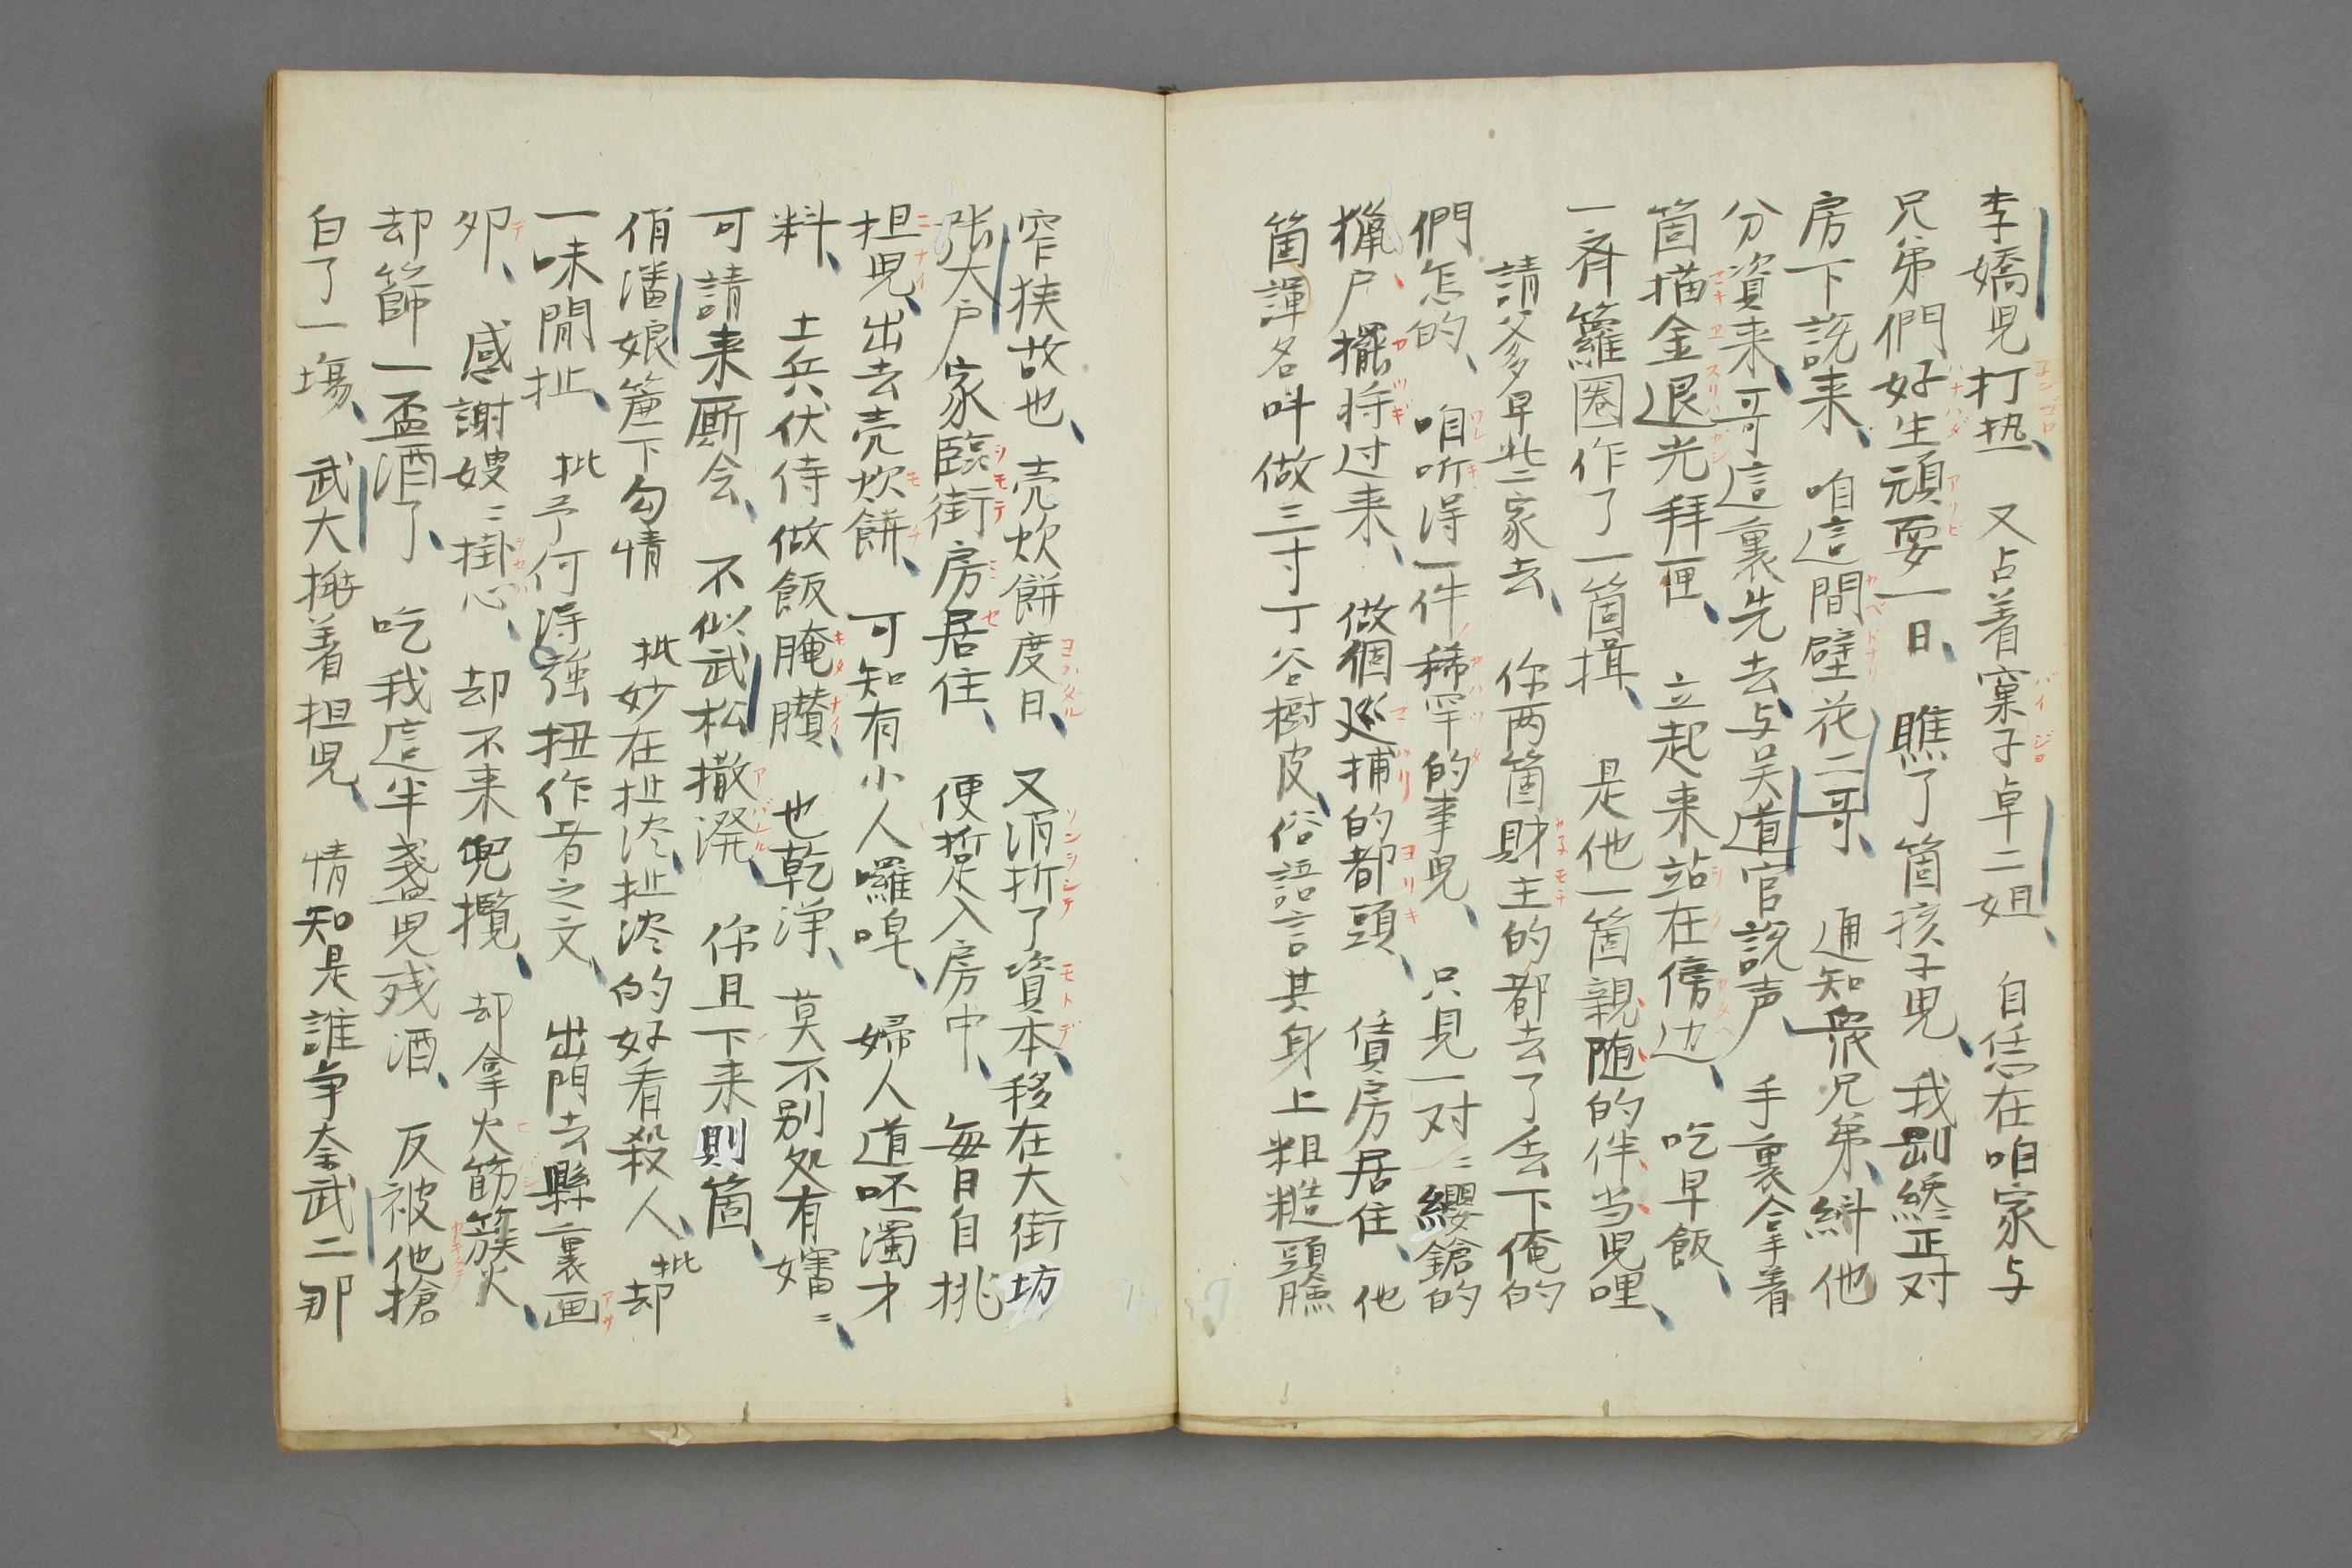 李嬌児打热、又占着窠子卓二姐、自恁在咱家与
兄弟們好生頑耍一日、瞧了箇孩子児、我剛纔正对
房下說来、咱這間壁花二哥、通知衆兄弟、糾他
分資来、哥這裏先去与吴道官說声、手裏拿着
箇描金退光拜匣、立起来站在傍边、吃早飯、
一齊籮圈作了一箇揖、是他一箇親随的伴当児哩、
請爹早些家去、你两箇財主的都去了丢下俺的
們怎的、咱听淂一件稀罕的事児、只見一对〻纓鎗的
獵户擺将过来、做個巡捕的都頭、賃房居住、他
箇諢名叫做三寸丁谷樹皮、俗語言其身上粗糙頭臉
窄狭故也、壳炊餅度日、又消折了資本、移在大街坊
张大户家臨街房居住、便踅入房中、每日自挑
担児、出去壳炊餅、可知有小人囉唣、婦人道呸濁才
料、土兵伏侍做飯腌臢、也乾淨、莫不别処有嬸〻、
可請来厮会、不似武松撒溌、你且下来則箇、
俏潘娘簾下勾情 批妙在扯淡、扯淡的好看殺人、批却
一味閒扯、批予何淂強扭作者之文、出門去縣裏画
夘、感謝嫂〻掛心、却不来兜攬、却拿火筯簇火、
却篩一盃酒了、吃我這半盞児残酒、反被他搶
白了一塲、武大捱着担児、情知是誰争奈武二那